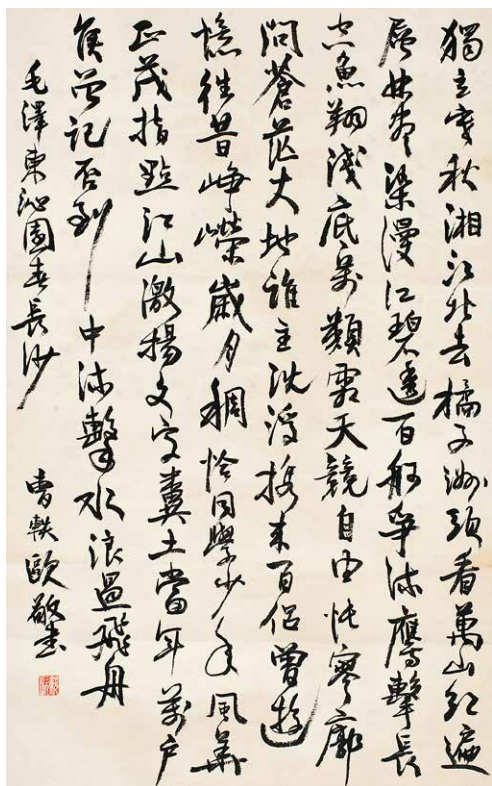 獨立寒秋湘江北去橘子洲頭看萬山紅遍
層林盡染漫江碧透百舸爭流鷹擊長
空魚翔淺底萬類霜天競自由悵寥廓
問蒼茫大地誰主沈浮携來百侶曾遊
憶往昔崢嶸歲月稠恰同學少年風華
正茂指點江山激揚文字糞土當年萬户
侯曾記否到中流擊水浪遏飛舟
毛澤東沁園春長沙
曹軼歐敬書